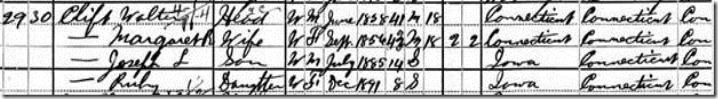 29 30 Clift Walter Head W M June 1858 41 M 18 Connecticut Connecticut Con
— Margaret R Wife W F Sept 1856 43 M 18 2 2 Connecticut Connecticut Con
— Joseph L Son W M July 1885 14 S Iowa Connecticut Con
— Ruby Daughter W F Dec 1891 8 S Iowa Connecticut Con